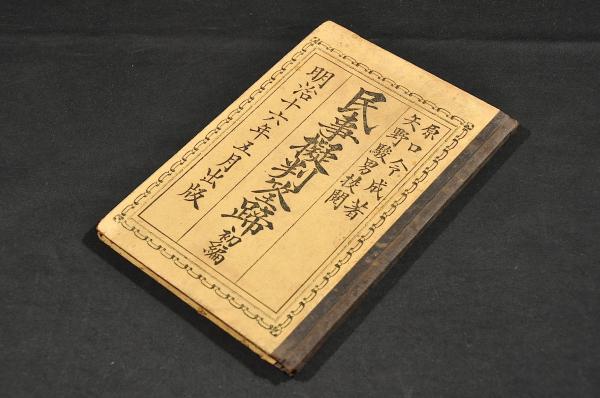 原口令成著
矢野駿男校閲
民事擬判筌蹄 初編
明治十六年五月出版